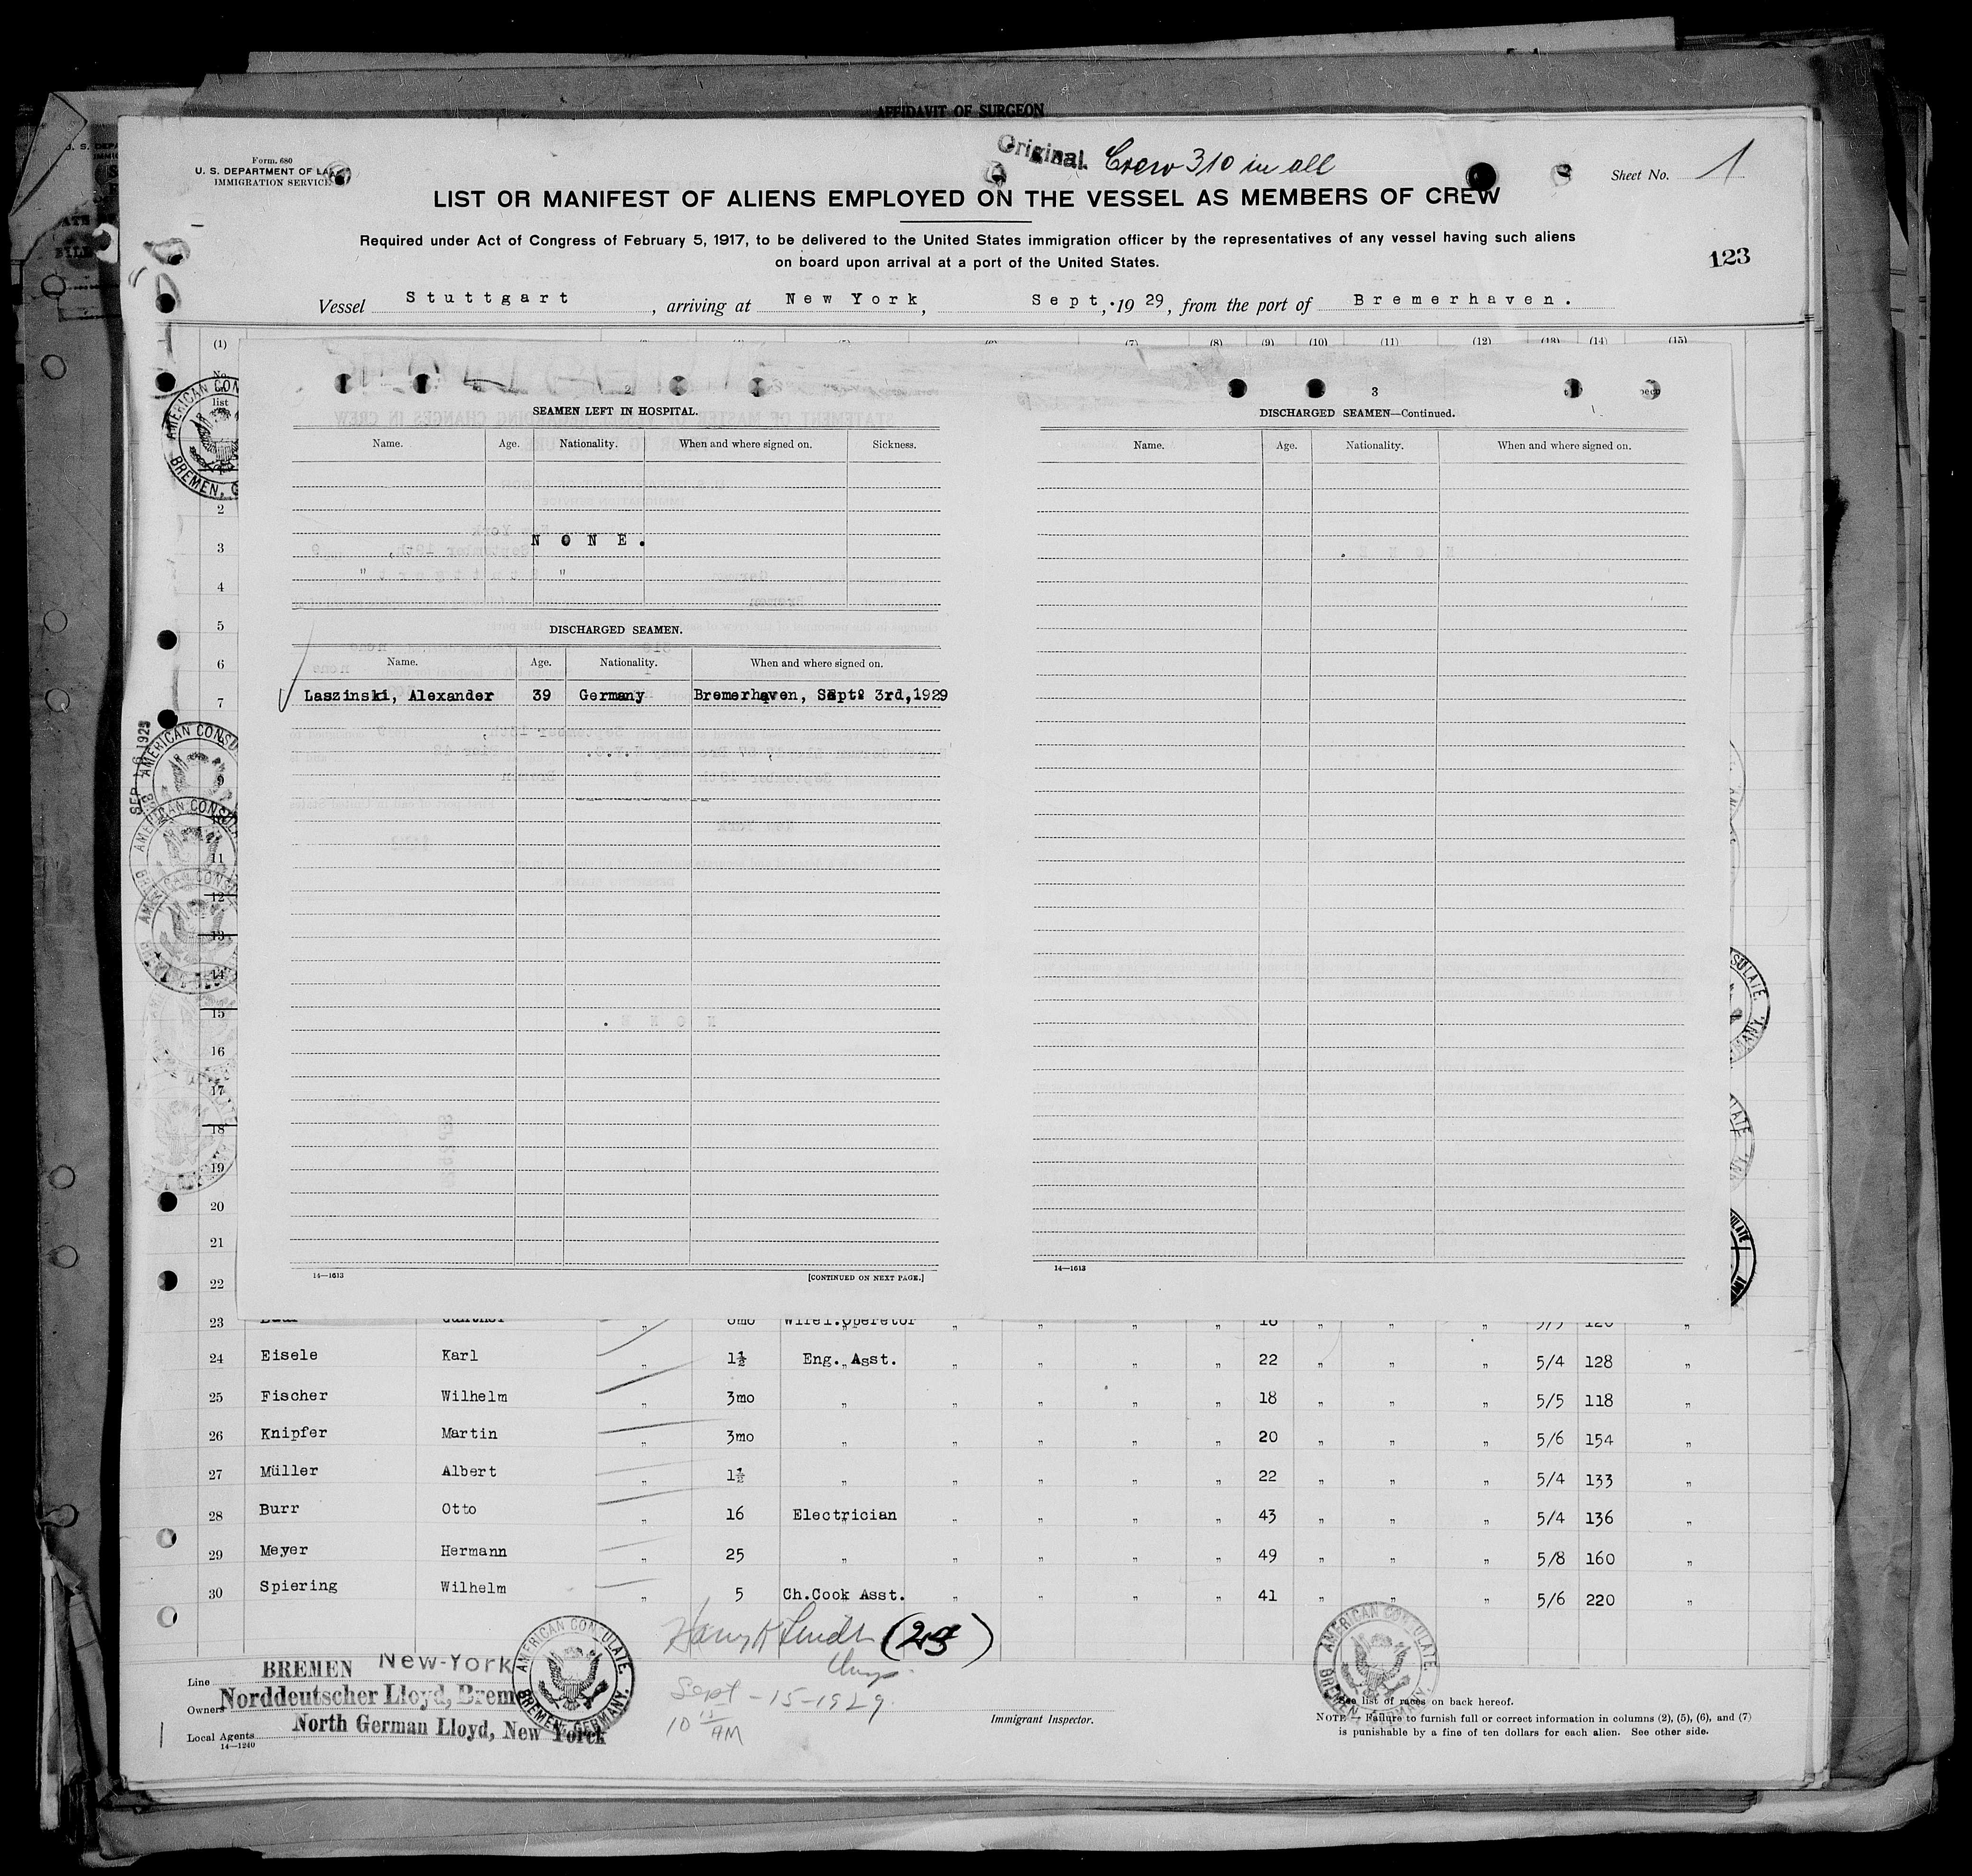 AFFIDAVIT OF SURGEON
Form. 680
U. S. DEPARTMENT OF LA
IMMIGRATION SERVICE
Original. Crew 310 in all
Sheet No. 1
LIST OR MANIFEST OF ALIENS EMPLOYED ON THE VESSEL AS MEMBERS OF CREW
Required under Act of Congress of February 5, 1917, to be delivered to the United States immigration officer by the representatives of any vessel having such aliens
on board upon arrival at a port of the United States.
123
Vessel Stuttgart, arriving at New York, Sept. 1929, from the port of Bremerhaven.
(1) (7) (8) (9) (10) (11) (12) (13) (14) (15)
No.
list
2
SEAMEN LEFT IN HOSPITAL.
Name. Age. Nationality. When and where signed on. Sickness.
NONE.
" "
DISCHARGED SEAMEN.
Name. Age. Nationality. When and where signed on.
Laszinski, Alexander 39 Germany Bremerhaven, Sept. 3rd, 1929
14—1613 [CONTINUED ON NEXT PAGE.]
3
DISCHARGED SEAMEN—Continued.
Name. Age. Nationality. When and where signed on.
14—1613
2
3
4
5
6
7
9
11
12
13
14
15
16
17
18
19
20
21
22
23
24 Eisele Karl " 1½ Eng. Asst. " " " " 22 " " " 5/4 128 "
25 Fischer Wilhelm " 3mo " " " " " 18 " " " 5/5 118 "
26 Knipfer Martin " 3mo " " " " " 20 " " " 5/6 154 "
27 Müller Albert " 1½ " " " " " 22 " " " 5/4 133 "
28 Burr Otto " 16 Electrician " " " " 43 " " " 5/4 136 "
29 Meyer Hermann " 25 " " " " " 49 " " " 5/8 160 "
30 Spiering Wilhelm " 5 Ch.Cook Asst. " " " " 41 " " " 5/6 220 "
Line BREMEN New-York
Owners Norddeutscher Lloyd, Breme
Local Agents North German Lloyd, New Yorck
14—1240
AMERICAN CONSULATE.
BREMEN, GERMANY.
Sept-15-1929.
10 15 AM
Immigrant Inspector.
AMERICAN CONSULATE.
BREMEN, GERMANY.
See list of races on back hereof.
NOTE.—Failure to furnish full or correct information in columns (2), (5), (6), and (7)
is punishable by a fine of ten dollars for each alien. See other side.